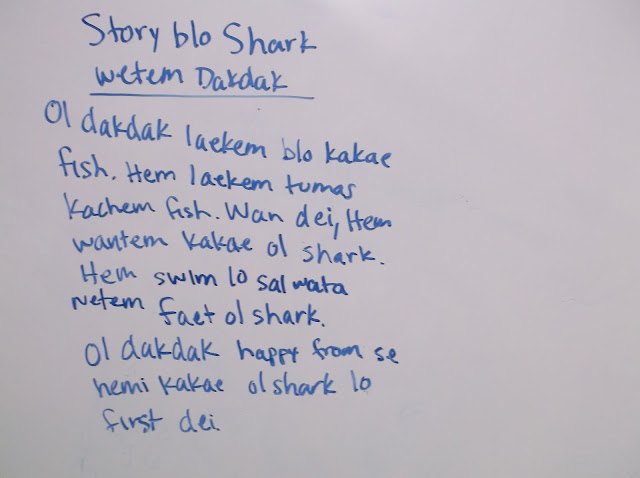 Story blo Shark
wetem Dakdak
Ol dakdak laekem blo kakae
fish. Hem laekem tumas
kachem fish. Wan dei, Hem
wantem kakae ol shark.
Hem swim lo sal wata
wetem faet ol shark.
Ol dakdak happy from se
hemi kakae ol shark lo
first dei.